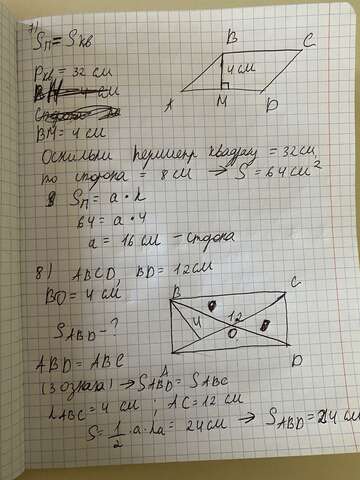 7)
Sп = Sкв
B
C
4 см
A
M
D
Pкв = 32 см
BM = 4 см
Оскільки периметр квадрату = 32 см,
то сторона = 8 см → S = 64 см²
Sп = a · h
64 = a · 4
a = 16 см – сторона
8) ABCD, BD = 12 см
BO = 4 см
B
C
4
12
O
A
D
SABD – ?
ABD = ABC
(3 ознака) → SABD = SABC
hABC = 4 см ; AC = 12 см
S = 1/2 · a · ha = 24 см → SABD = 24 см